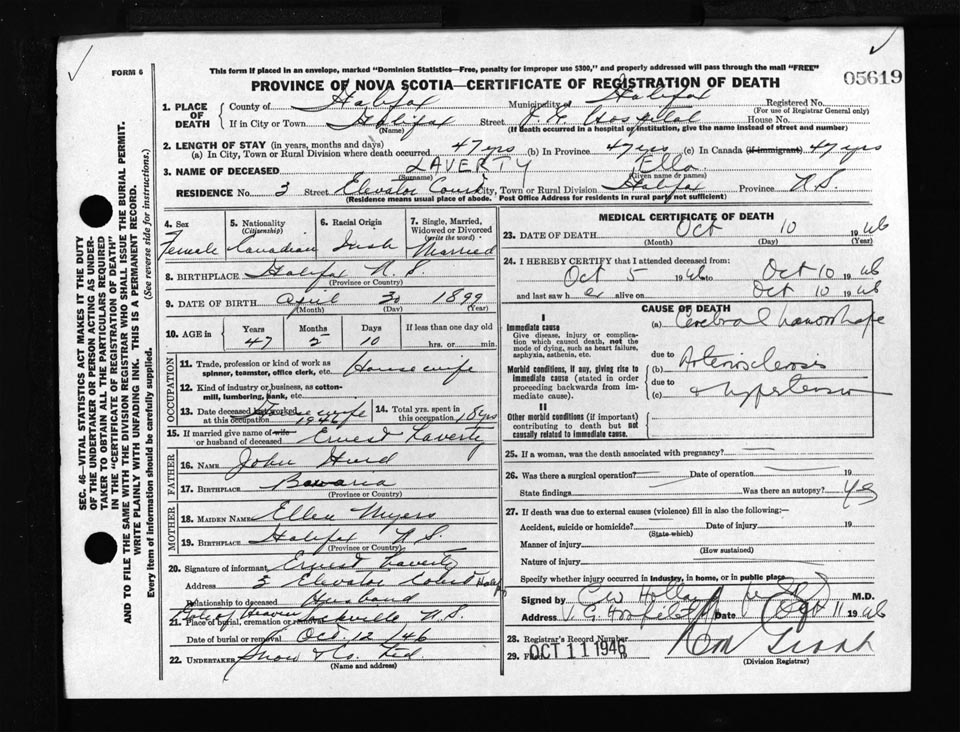 FORM 6
This form if placed in an envelope, marked "Dominion Statistics—Free, penalty for improper use $300," and properly addressed will pass through the mail "FREE"
PROVINCE OF NOVA SCOTIA—CERTIFICATE OF REGISTRATION OF DEATH
05619
1. PLACE OF DEATH
County of Halifax Municipality of Halifax Registered No.
(For use of Registrar General only)
If in City or Town Halifax Street V. G. Hospital House No.
(Name) (If death occurred in a hospital or institution, give the name instead of street and number)
2. LENGTH OF STAY (in years, months and days)
(a) In City, Town or Rural Division where death occurred 47 yrs (b) In Province 47 yrs (c) In Canada (if immigrant) 47 yrs
3. NAME OF DECEASED LAVERTY Ella
(Surname) (Given name or names)
RESIDENCE No. 3 Street Elevator Court City, Town or Rural Division Halifax Province N.S.
(Residence means usual place of abode. Post Office Address for residents in rural parts not sufficient)
4. Sex Female
5. Nationality (Citizenship) Canadian
6. Racial Origin Irish
7. Single, Married, Widowed or Divorced (write the word) Married
8. BIRTHPLACE Halifax N.S.
(Province or Country)
9. DATE OF BIRTH April 30 1899
(Month) (Day) (Year)
10. AGE in Years 47 Months 5 Days 10 If less than one day old hrs. or min.
OCCUPATION
11. Trade, profession or kind of work as spinner, teamster, office clerk, etc. Housewife
12. Kind of industry or business, as cotton-mill, lumbering, bank, etc.
13. Date deceased last worked at this occupation Housewife 1946
14. Total yrs. spent in this occupation 18 yrs
15. If married give name of wife or husband of deceased Ernest Laverty
FATHER
16. NAME John Hurd
17. BIRTHPLACE Bavaria
(Province or Country)
MOTHER
18. MAIDEN NAME Ellen Myers
19. BIRTHPLACE Halifax N.S.
(Province or Country)
20. Signature of informant Ernest Laverty
Address 3 Elevator Court Halifax
Relationship to deceased Husband
21. Place of burial, cremation or removal Gate of Heaven Sackville N.S.
Date of burial or removal Oct. 12/46
22. UNDERTAKER Snow & Co. Ltd.
(Name and address)
MEDICAL CERTIFICATE OF DEATH
23. DATE OF DEATH Oct 10 1946
(Month) (Day) (Year)
24. I HEREBY CERTIFY that I attended deceased from:
Oct 5 1946 Oct 10 1946
and last saw her alive on Oct 10 1946
CAUSE OF DEATH
I
Immediate cause
Give disease, injury or complication which caused death, not the mode of dying, such as heart failure, asphyxia, asthenia, etc.
(a) Cerebral hemorrhage
due to
Morbid conditions, if any, giving rise to immediate cause (stated in order proceeding backwards from immediate cause).
(b) Arteriosclerosis
due to
(c) & Hypertension
II
Other morbid conditions (if important) contributing to death but not causally related to immediate cause.
25. If a woman, was the death associated with pregnancy?
26. Was there a surgical operation? Date of operation 19
State findings Was there an autopsy? Yes
27. If death was due to external causes (violence) fill in also the following:—
Accident, suicide or homicide? Date of injury 19
(State which)
Manner of injury
(How sustained)
Nature of injury
Specify whether injury occurred in industry, in home, or in public place
Signed by M.D.
Address V G Hospital Date Oct 11 1946
28. Registrar's Record Number
29. Filed OCT 11 1946 19
(Division Registrar)
SEC. 46—VITAL STATISTICS ACT MAKES IT THE DUTY
OF THE UNDERTAKER OR PERSON ACTING AS UNDERTAKER TO OBTAIN ALL THE PARTICULARS REQUIRED
IN THE "CERTIFICATE OF REGISTRATION OF DEATH"
AND TO FILE THE SAME WITH THE DIVISION REGISTRAR WHO SHALL ISSUE THE BURIAL PERMIT.
WRITE PLAINLY WITH UNFADING INK. THIS IS A PERMANENT RECORD.
Every item of information should be carefully supplied. (See reverse side for instructions.)